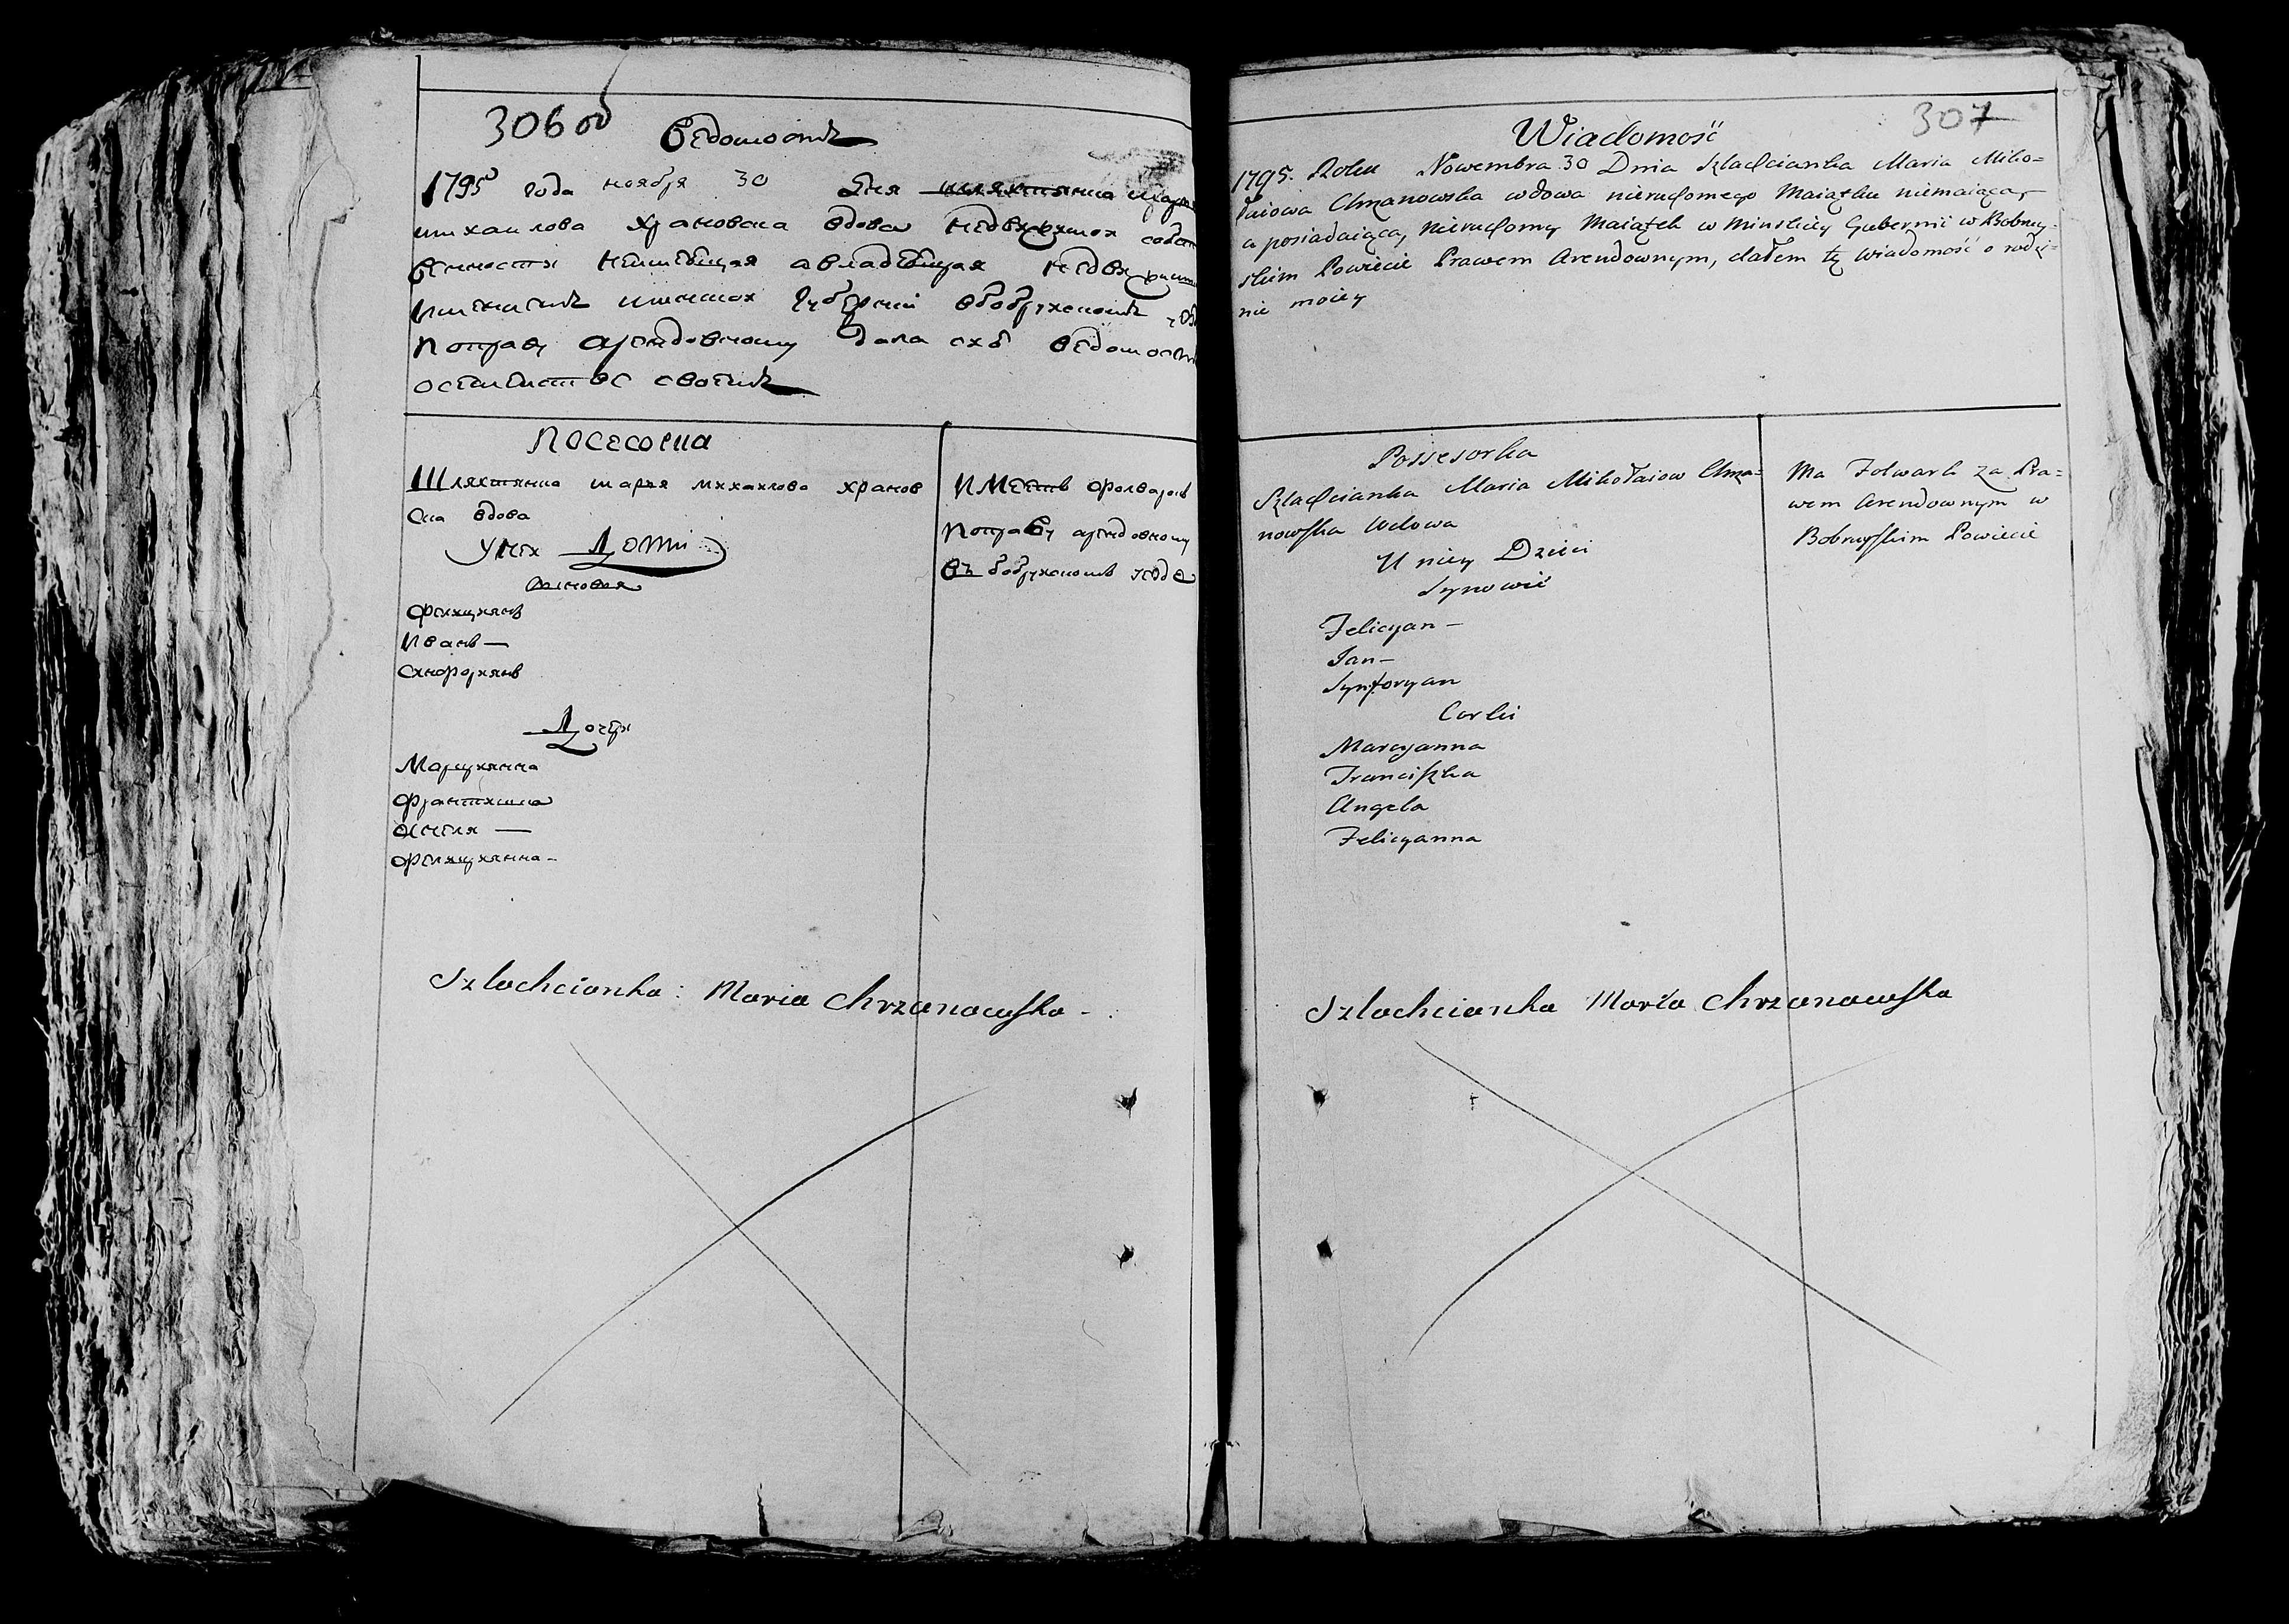 306 об
Ведомость
1795 года ноября 30 Дня шляхтянка
михаилова храновска вдова
неимеющая а владеющая
губернии
поправу арендовному дала сию ведомость
осемемстве своемъ
Посесорка
Шляхтянка Маръя михаилова хранов
ска вдова
У неи Дети
сыновя
Фелицыянъ
Иванъ —
Синфориянъ
Дочери
Марцыянна
Францишка
Анеля —
Фелицыянна -
Имеетъ фолваркъ
поправу арендовному
въ бобруискомъ уезде
Szlachcianka: Maria Chrzanowska -
307
Wiadomość
1795. Roku Nowembra 30 Dnia Szlachcianka Maria Miko=
łaiowa Chrzanowska wdowa nieruchomego Maiątku niemaiąca,
a posiadaiąca, nieruchomy Maiątek w Minskiey Gubernii w Bobruy=
skim Powiecie Prawem Arendownym, dałem tę wiadomość o rodzi=
nie moiey
Possesorka
Szlachcianka Maria Mikołaiow Chrza=
nowska Wdowa
U niey Dzieci
Synowie
Felicyan —
Jan —
Symforyan
Corki
Marcyanna
Franciszka
Angela
Felicyanna
Ma Folwark za Pra=
wem Arendownym w
Bobruyskim Powiecie
Szlachcianka Maria Chrzanowska